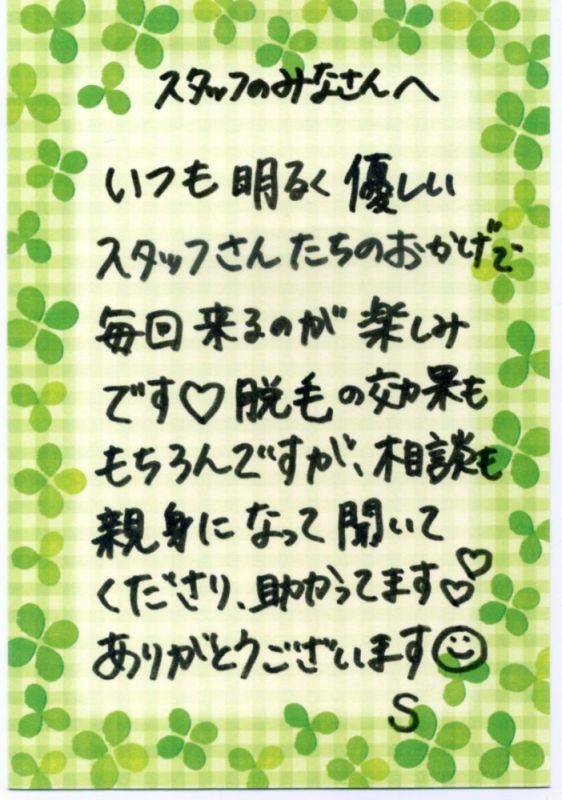 スタッフのみなさんへ
いつも明るく優しい
スタッフさんたちのおかげで
毎回来るのが楽しみ
です♡脱毛の効果も
もちろんですが、相談も
親身になって聞いて
くださり、助かってます♡♡
ありがとうございます☺
S